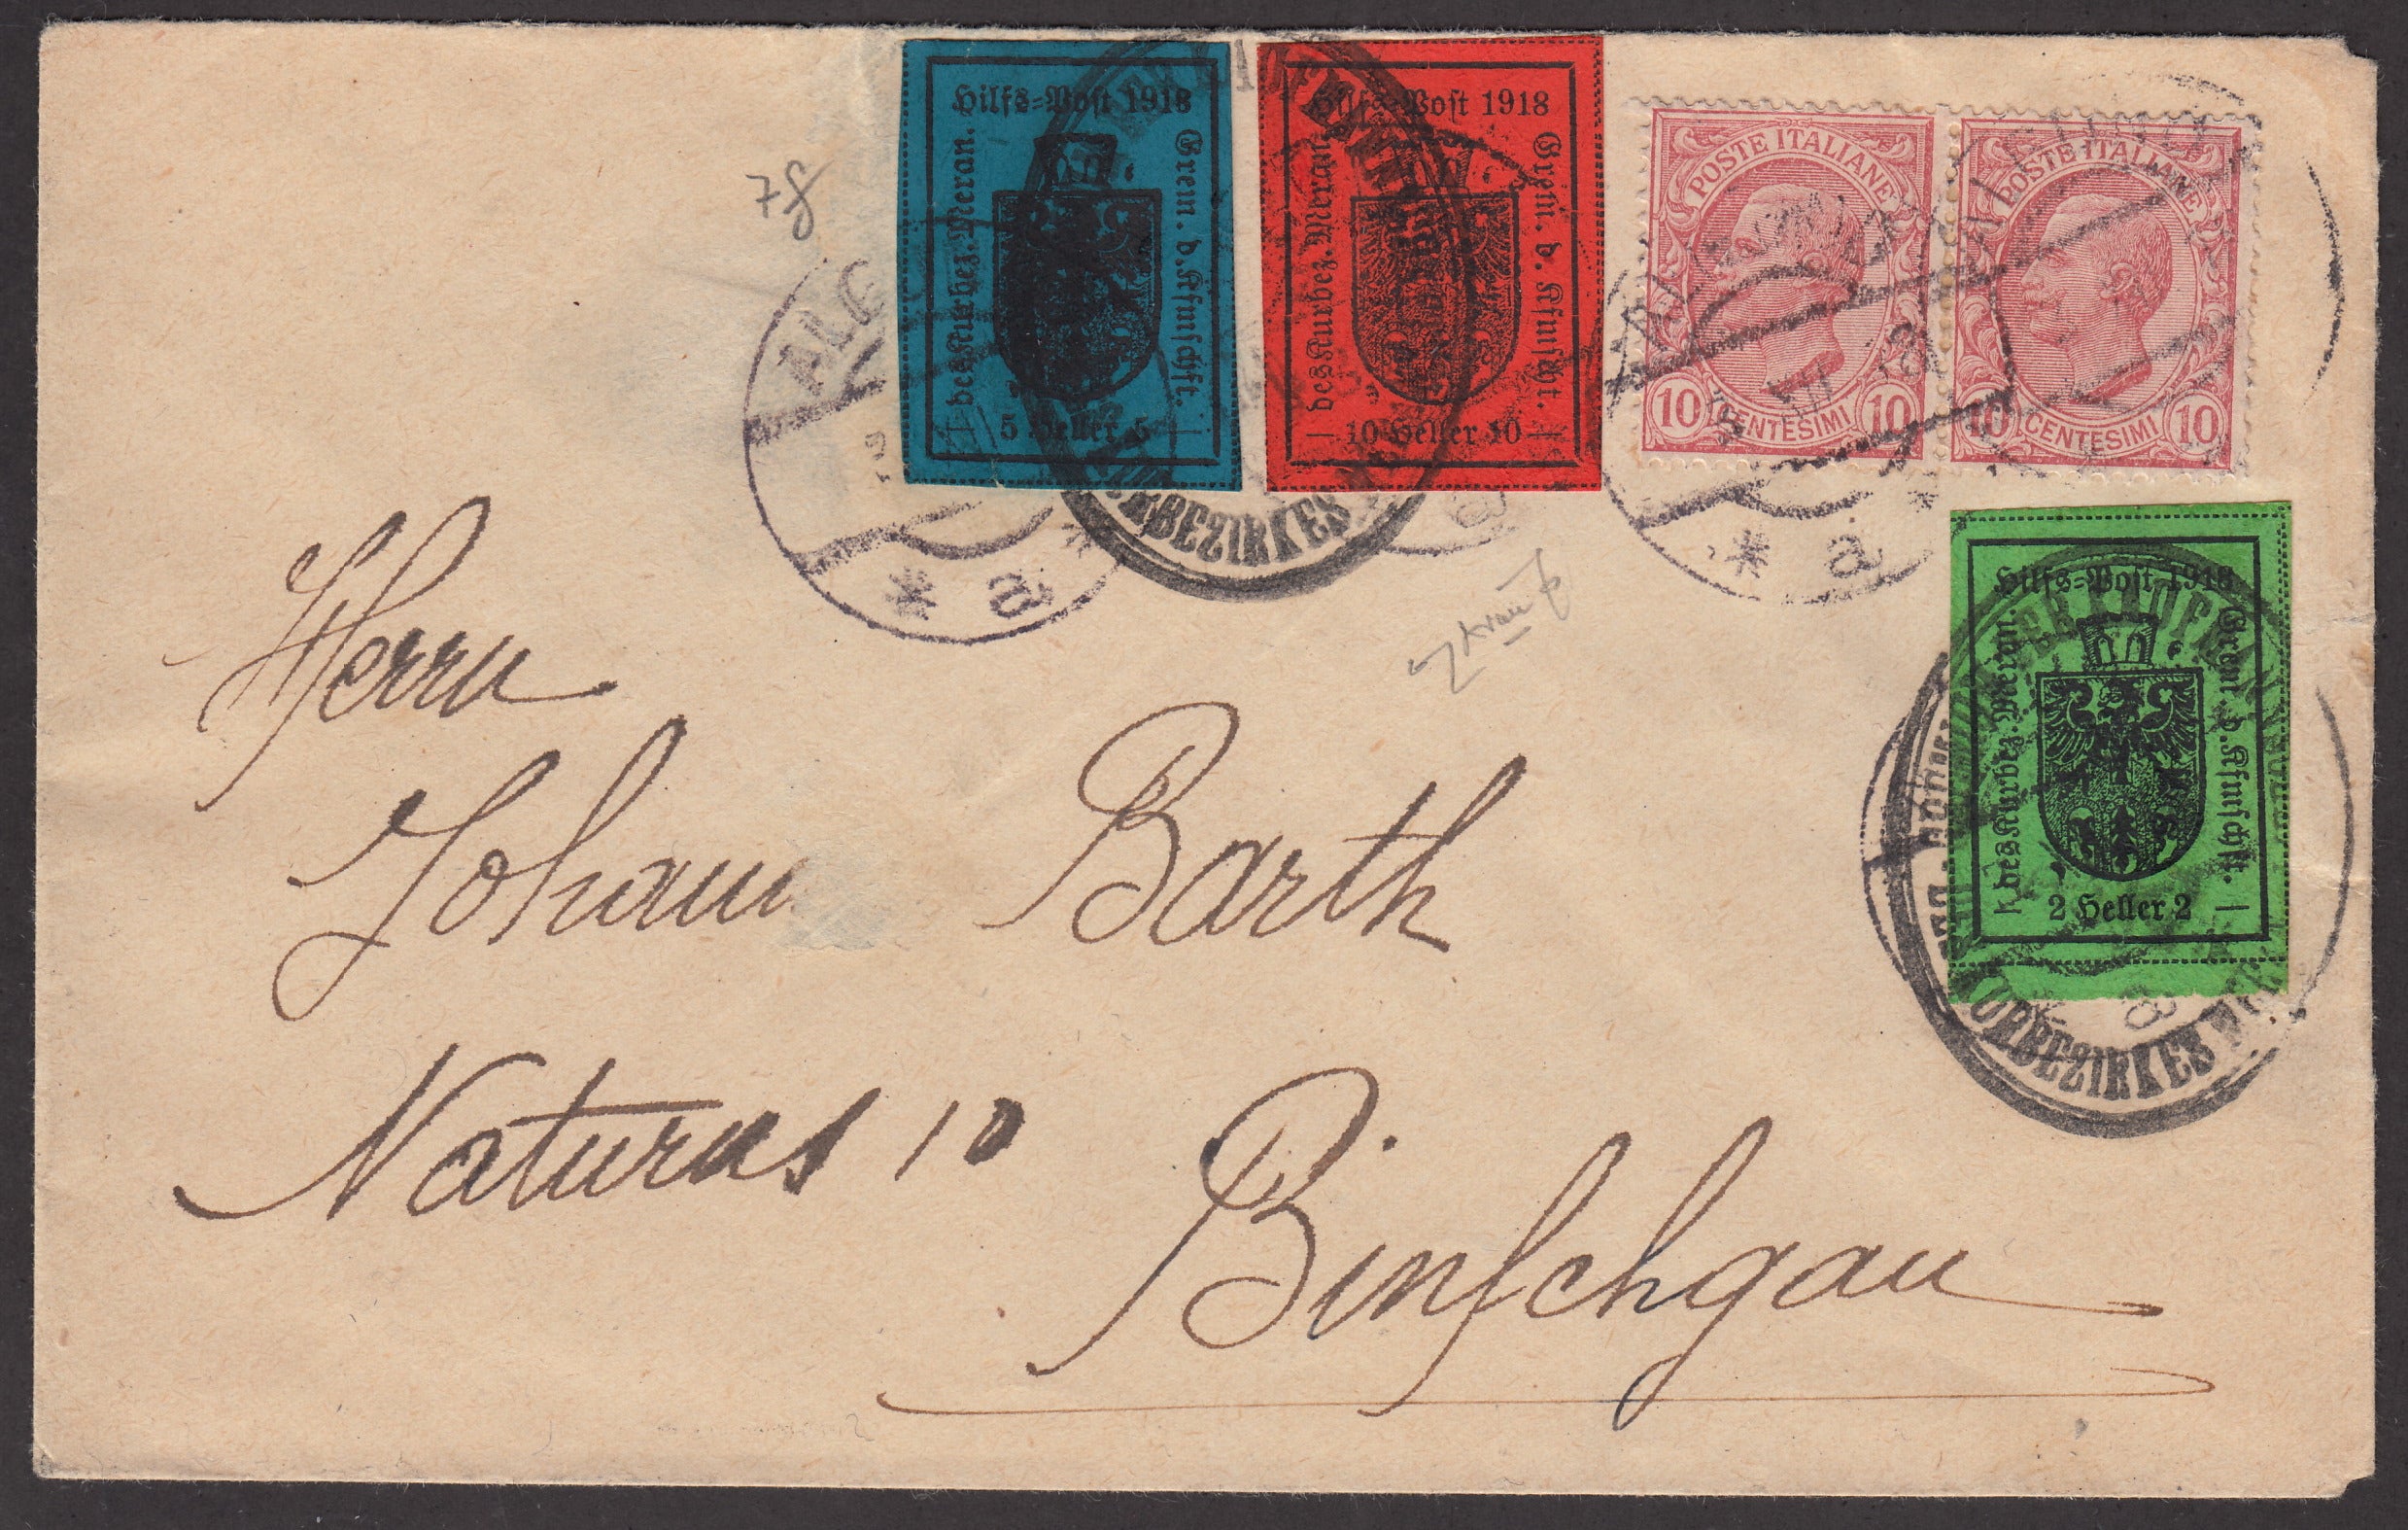 Hilfs=Post 1918
des Kurbez. Meran.
Grem. d. Kfmschft.
5 Heller 5
Hilfs=Post 1918
des Kurbez. Meran.
Grem. d. Kfmschft.
10 Heller 10
POSTE ITALIANE
10 CENTESIMI 10
POSTE ITALIANE
10 CENTESIMI 10
* a *
* a *
KURBEZIRKES
Hilfs=Post 1918
des Kurbez. Meran.
Grem. d. Kfmschft.
2 Heller 2
KURBEZIRKES
Herrn
Johann Barth
Naturns 10
Vinschgau